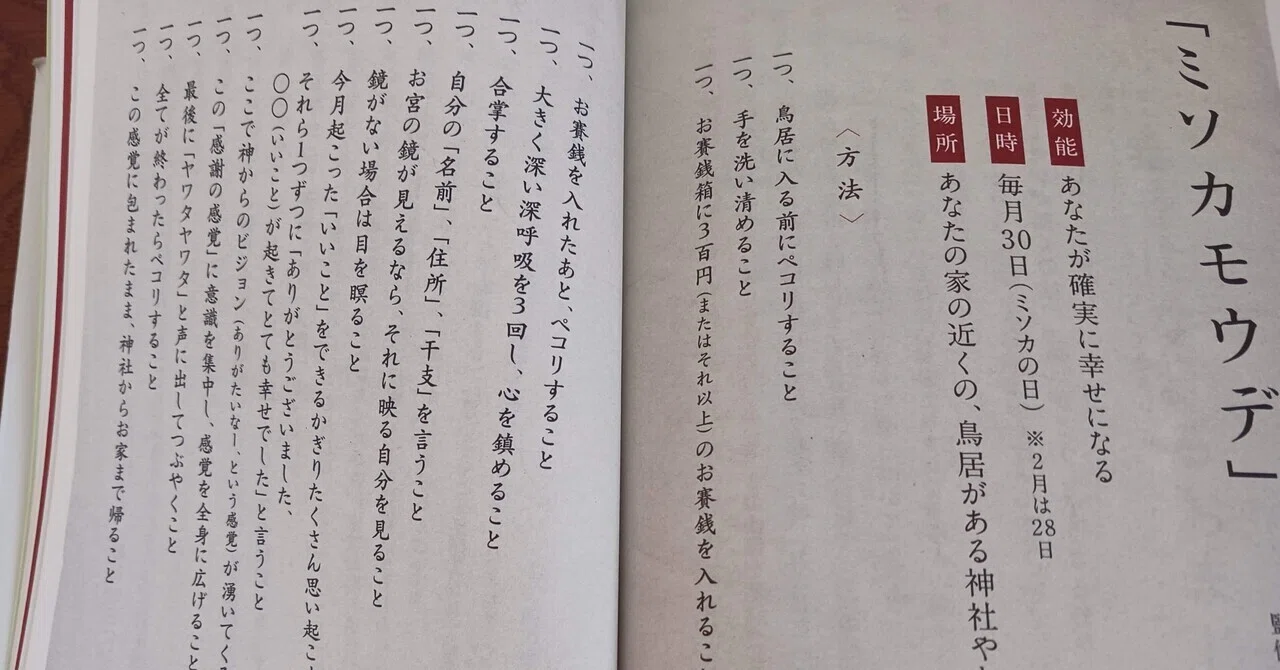 「ミソカモウデ」
効能 あなたが確実に幸せになる
日時 毎月30日(ミソカの日) ※2月は28日
場所 あなたの家の近くの、鳥居がある神社や
〈方法〉
一つ、鳥居に入る前にペコリすること
一つ、手を洗い清めること
一つ、お賽銭箱に3百円(またはそれ以上)のお賽銭を入れるこ
一つ、お賽銭を入れたあと、ペコリすること
一つ、大きく深い深呼吸を3回し、心を鎮めること
一つ、合掌すること
一つ、自分の「名前」、「住所」、「干支」を言うこと
一つ、お宮の鏡が見えるなら、それに映る自分を見ること
一つ、鏡がない場合は目を瞑ること
一つ、今月起こった「いいこと」をできるかぎりたくさん思い起こ
一つ、それら1つずつに「ありがとうございました、
〇〇(いいこと)が起きてとても幸せでした」と言うこと
一つ、ここで神からのビジョン(ありがたいなー、という感覚)が湧いてく
一つ、この「感謝の感覚」に意識を集中し、感覚を全身に広げること
一つ、最後に「ヤワタヤワタ」と声に出してつぶやくこと
一つ、全てが終わったらペコリすること
一つ、この感覚に包まれたまま、神社からお家まで帰ること